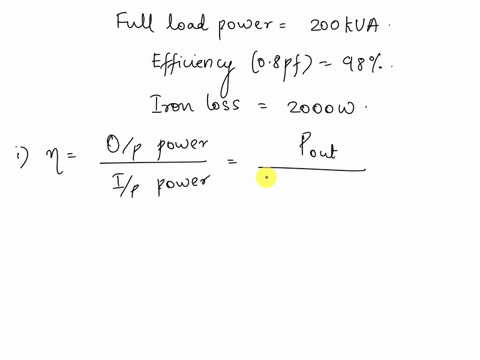 Full load power = 200 kVA.
Efficiency (0.8pf) = 98%.
Iron loss = 2000 W.
i) η = O/p power / I/p power = Pout